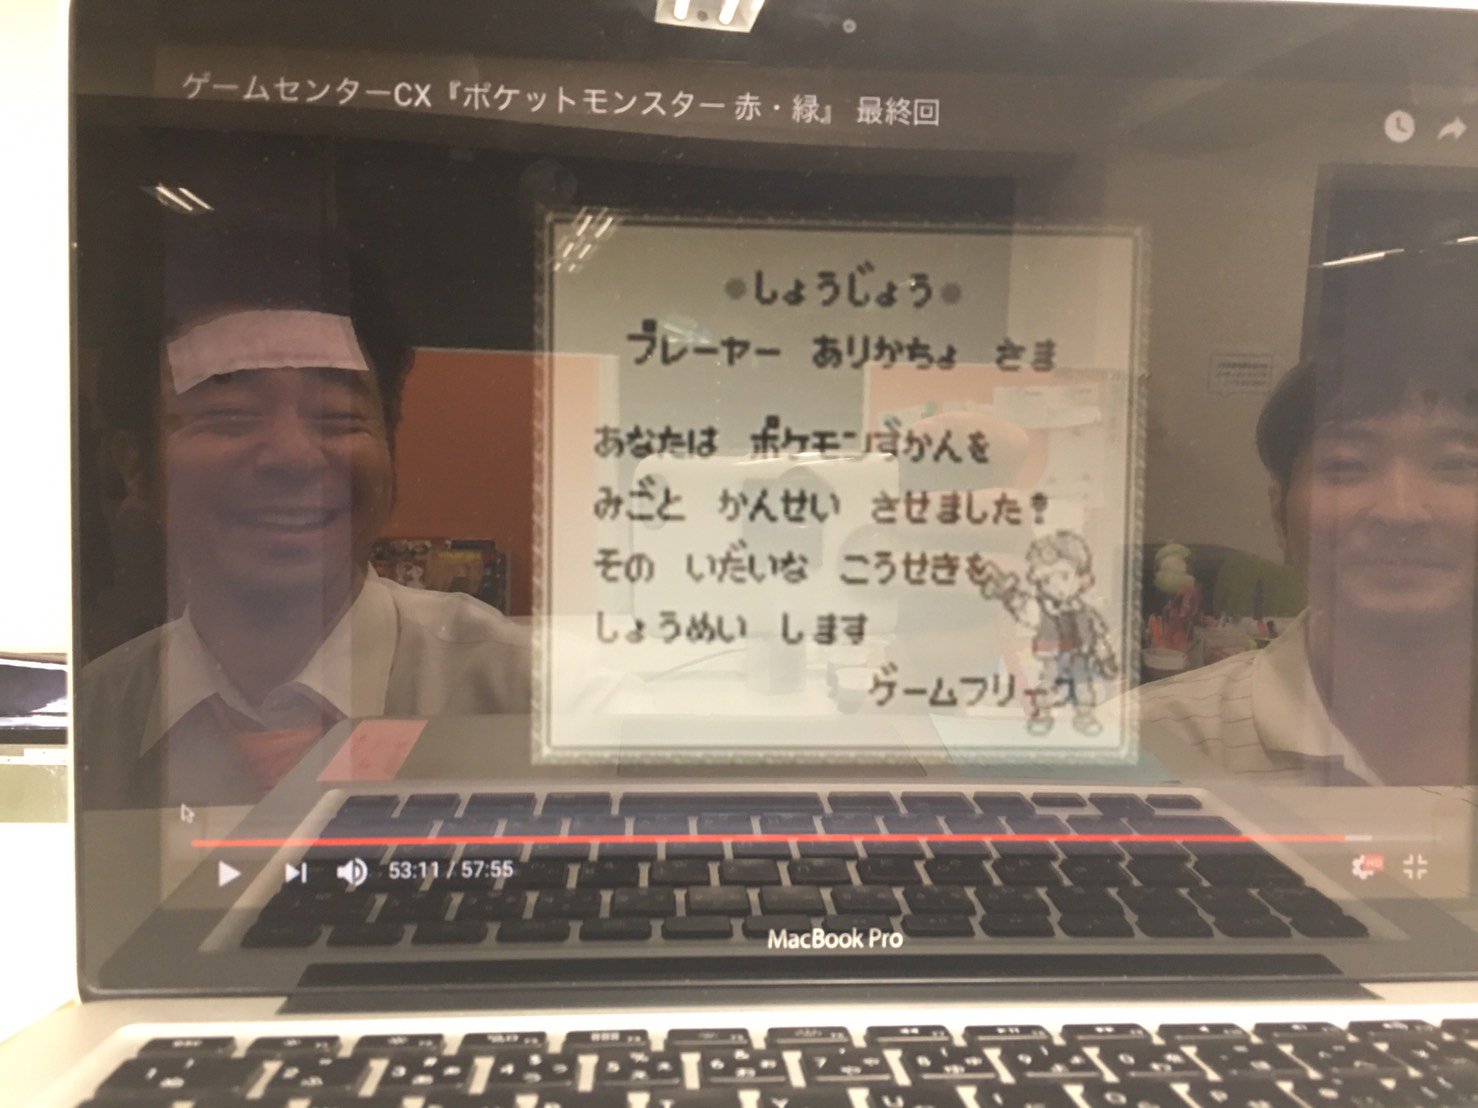 ゲームセンターCX『ポケットモンスター 赤・緑』 最終回
●しょうじょう●
プレーヤー ありかちょ さま
あなたは ポケモンずかんを
みごと かんせい させました!
その いだいな こうせきを
しょうめい します
ゲームフリーク
53:11 / 57:55
HD
MacBook Pro